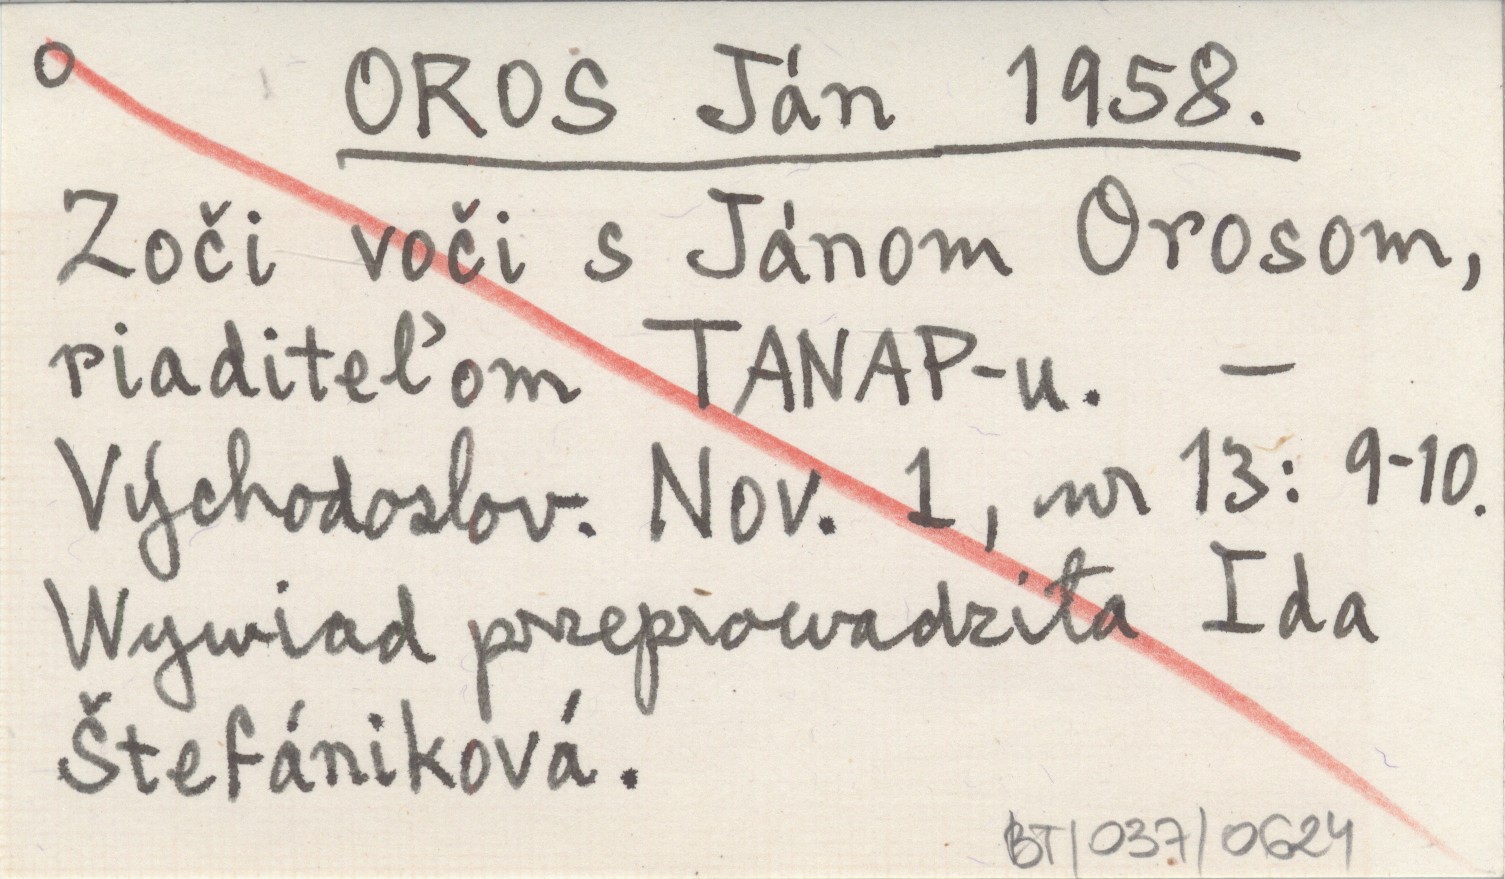 o OROS Ján 1958.
Zoči voči s Jánom Orosom,
riaditeľom TANAP-u. –
Východoslov. Nov. 1, nr 13: 9-10.
Wywiad przeprowadziła Ida
Štefániková.
BT/037/0624